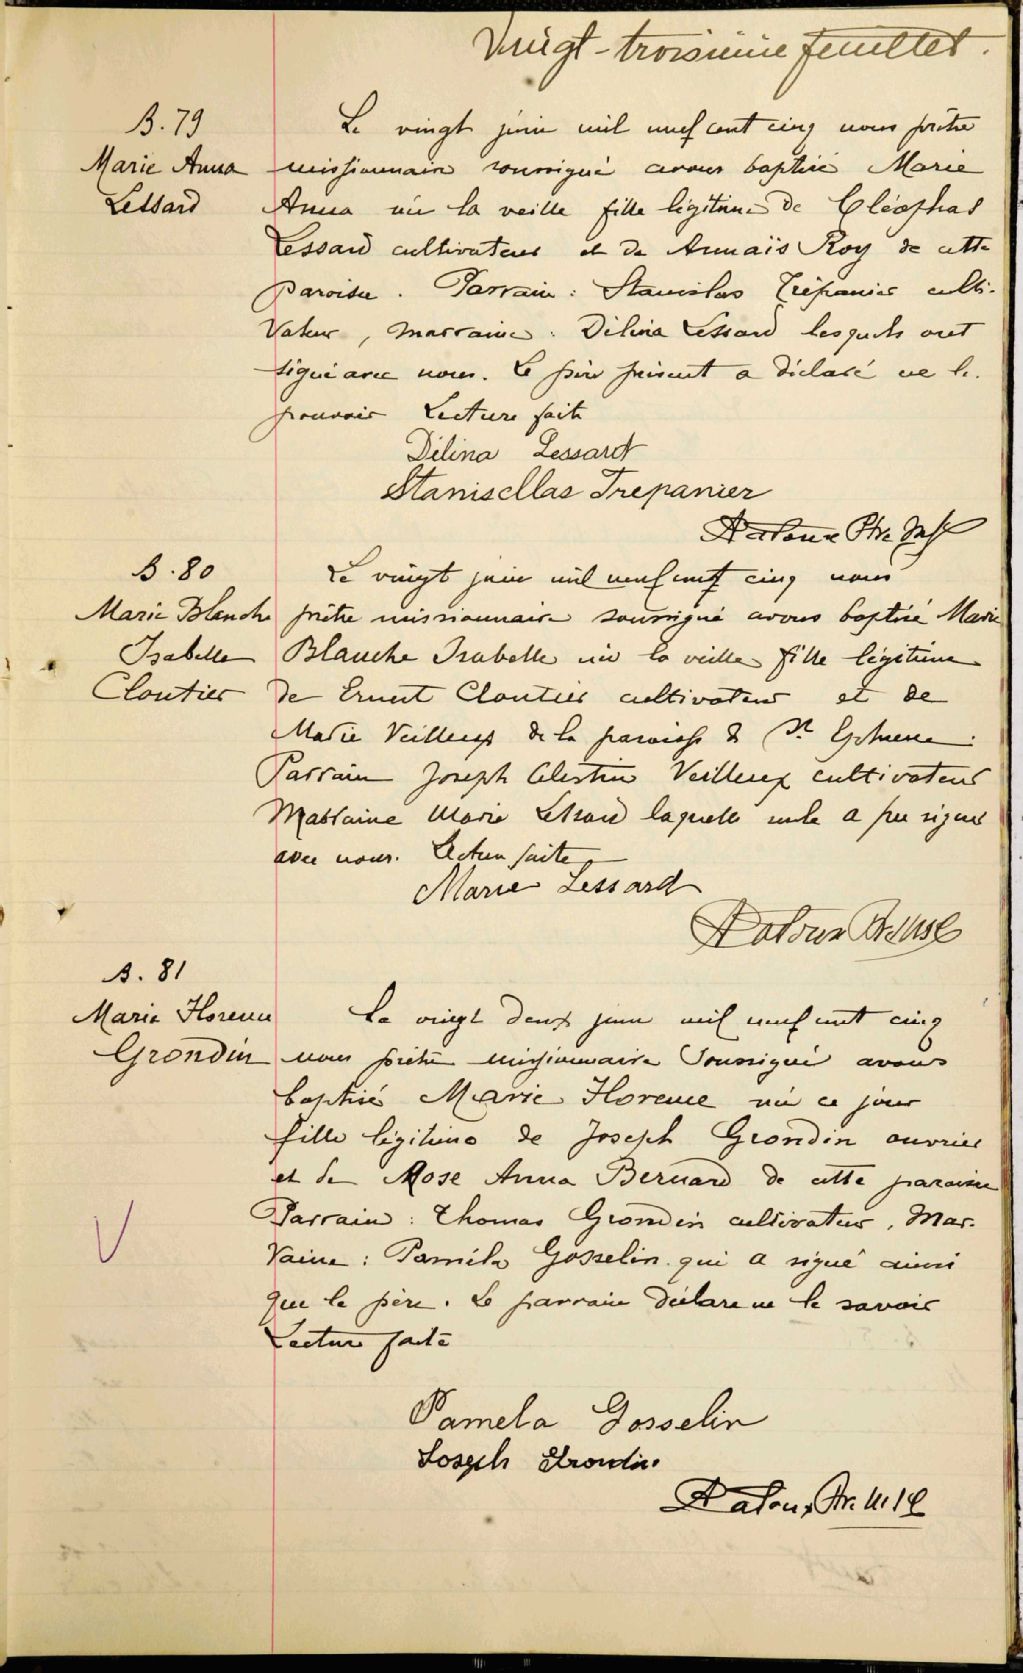 Vingt-troisième feuillet.
B. 79
Marie Anna
Lessard
Le vingt juin mil neuf cent cinq nous prêtre
missionnaire soussigné avons baptisé Marie
Anna née la veille fille légitime de Cléophas
Lessard cultivateur et de Annaïs Roy de cette
paroisse. Parrain : Stanislas Trépanier culti-
vateur, marraine : Délina Lessard lesquels ont
signé avec nous. Le père présent a déclaré ne le
pouvoir Lecture faite
Délina Lessard
Stanisellas Trepanier
Ptre
B. 80
Marie Blanche
Isabelle
Cloutier
Le vingt juin mil neuf cent cinq nous
prêtre missionnaire soussigné avons baptisé Marie
Blanche Isabelle née la veille fille légitime
de Ernest Cloutier cultivateur et de
Marie Veilleux de la paroisse de St
Parrain Joseph Célestin Veilleux cultivateur
Marraine Marie Lessard laquelle seule a pu signer
avec nous. Lecture faite
Marie Lessard
B. 81
Marie Florence
Grondin
Le vingt deux juin mil neuf cent cinq
nous prêtre missionnaire soussigné avons
baptisé Marie Florence née ce jour
fille légitime de Joseph Grondin ouvrier
et de Rose Anna Bernard de cette paroisse
Parrain : Thomas Grondin cultivateur, Mar-
raine : Paméla Gosselin qui a signé ainsi
que le père. Le parrain déclare ne le savoir
Lecture faite
Pamela Gosselin
Joseph Grondin
Ptre